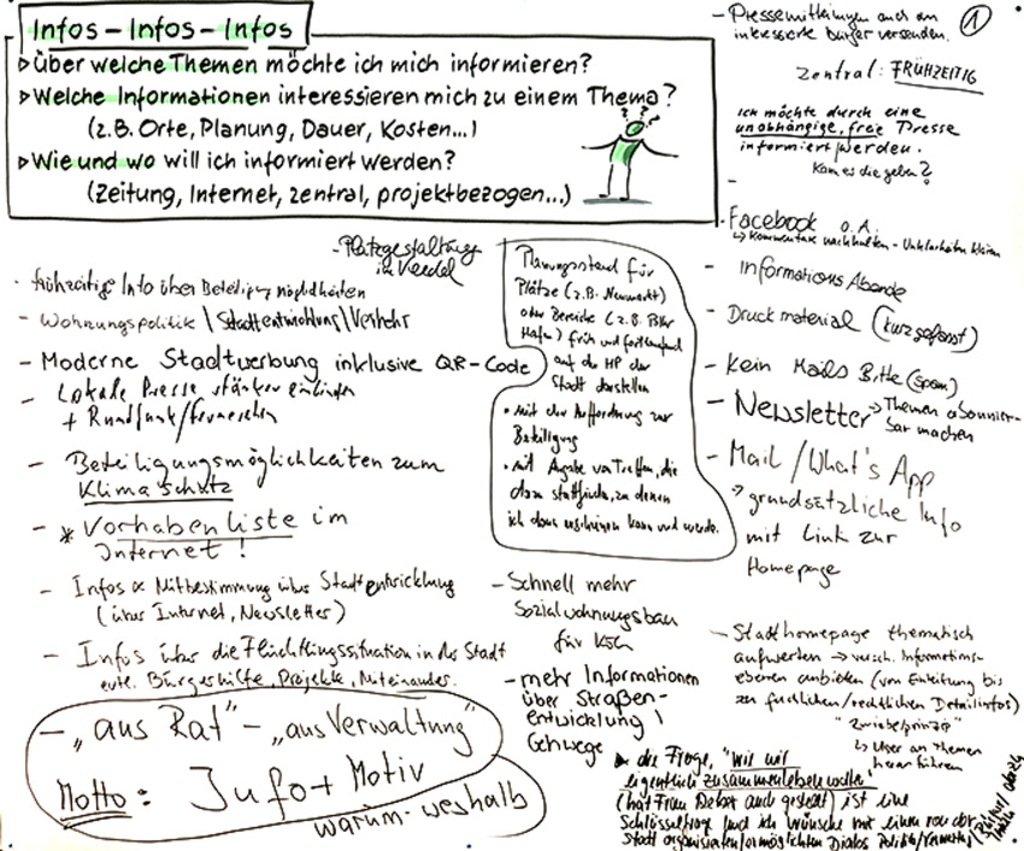 Infos – Infos – Infos
▹ Über welche Themen möchte ich mich informieren?
▹ Welche Informationen interessieren mich zu einem Thema?
(z.B. Orte, Planung, Dauer, Kosten...)
▹ Wie und wo will ich informiert werden?
(Zeitung, Internet, zentral, projektbezogen...)
- Platzgestaltung
im Veedel
· frühzeitige Info über Beteiligung möglichkeiten
- Wohnungspolitik | Stadtentwicklung | Verkehr
- Moderne Stadtwerbung inklusive QR-Code
- Lokale Presse stärker einbinden
+ Rundfunk/Fernsehen
- Beteiligungsmöglichkeiten zum
Klimaschutz
- * Vorhabenliste im
Internet!
- Infos Mitbestimmung über Stadtentwicklung
(über Internet, Newsletter)
- Infos über die Flüchtlingssituation in der Stadt
evtl. Bürgerhilfe, Projekte, Miteinander.
- „aus Rat" - „aus Verwaltung"
Motto: Jufo + Motiv
warum- weshalb
Planungsstand für
Plätze (z.B. Neumarkt)
oder Bereiche (z.B.
Hafen) früh und fortlaufend
auf der HP der
Stadt darstellen
• mit der Aufforderung zur
Beteiligung
• mit Angabe von Treffen, die
dazu stattfinden, zu denen
ich dann erscheinen kann und werde.
- Schnell mehr
Sozialwohnungsbau
für
- mehr Informationen
über Straßen-
entwicklung /
Gehwege
- Pressemitteilungen auch an
interessierte Bürger versenden.
①
Zentral: FRÜHZEITIG
Ich möchte durch eine
unabhängige, freie Presse
informiert werden.
Kann es die geben?
-
- Facebook o.Ä.
↳ Kommentare nachhalten - Unklarheiten klären
- Informations Abende
- Druckmaterial (kurzgefasst)
- Kein Mails Bitte (Spam)
- Newsletter → Themen abonnier-
bar machen
- Mail / What's App
→ grundsätzliche Info
mit Link zur
Homepage
- Stadthomepage thematisch
aufwerten → versch. Informations-
ebenen anbieten (von Einleitung bis
zu fachlichen/rechtlichen Detailinfos)
"Zwiebelprinzip"
↳ User an Themen
heranführen
▸ die Frage, "wie wir
eigentlich zusammenleben wollen"
(hat Frau auch gestellt) ist eine
Schlüsselfrage und ich wünsche mir einen von der
Stadt organisierten/ermöglichten Dialog Politik/